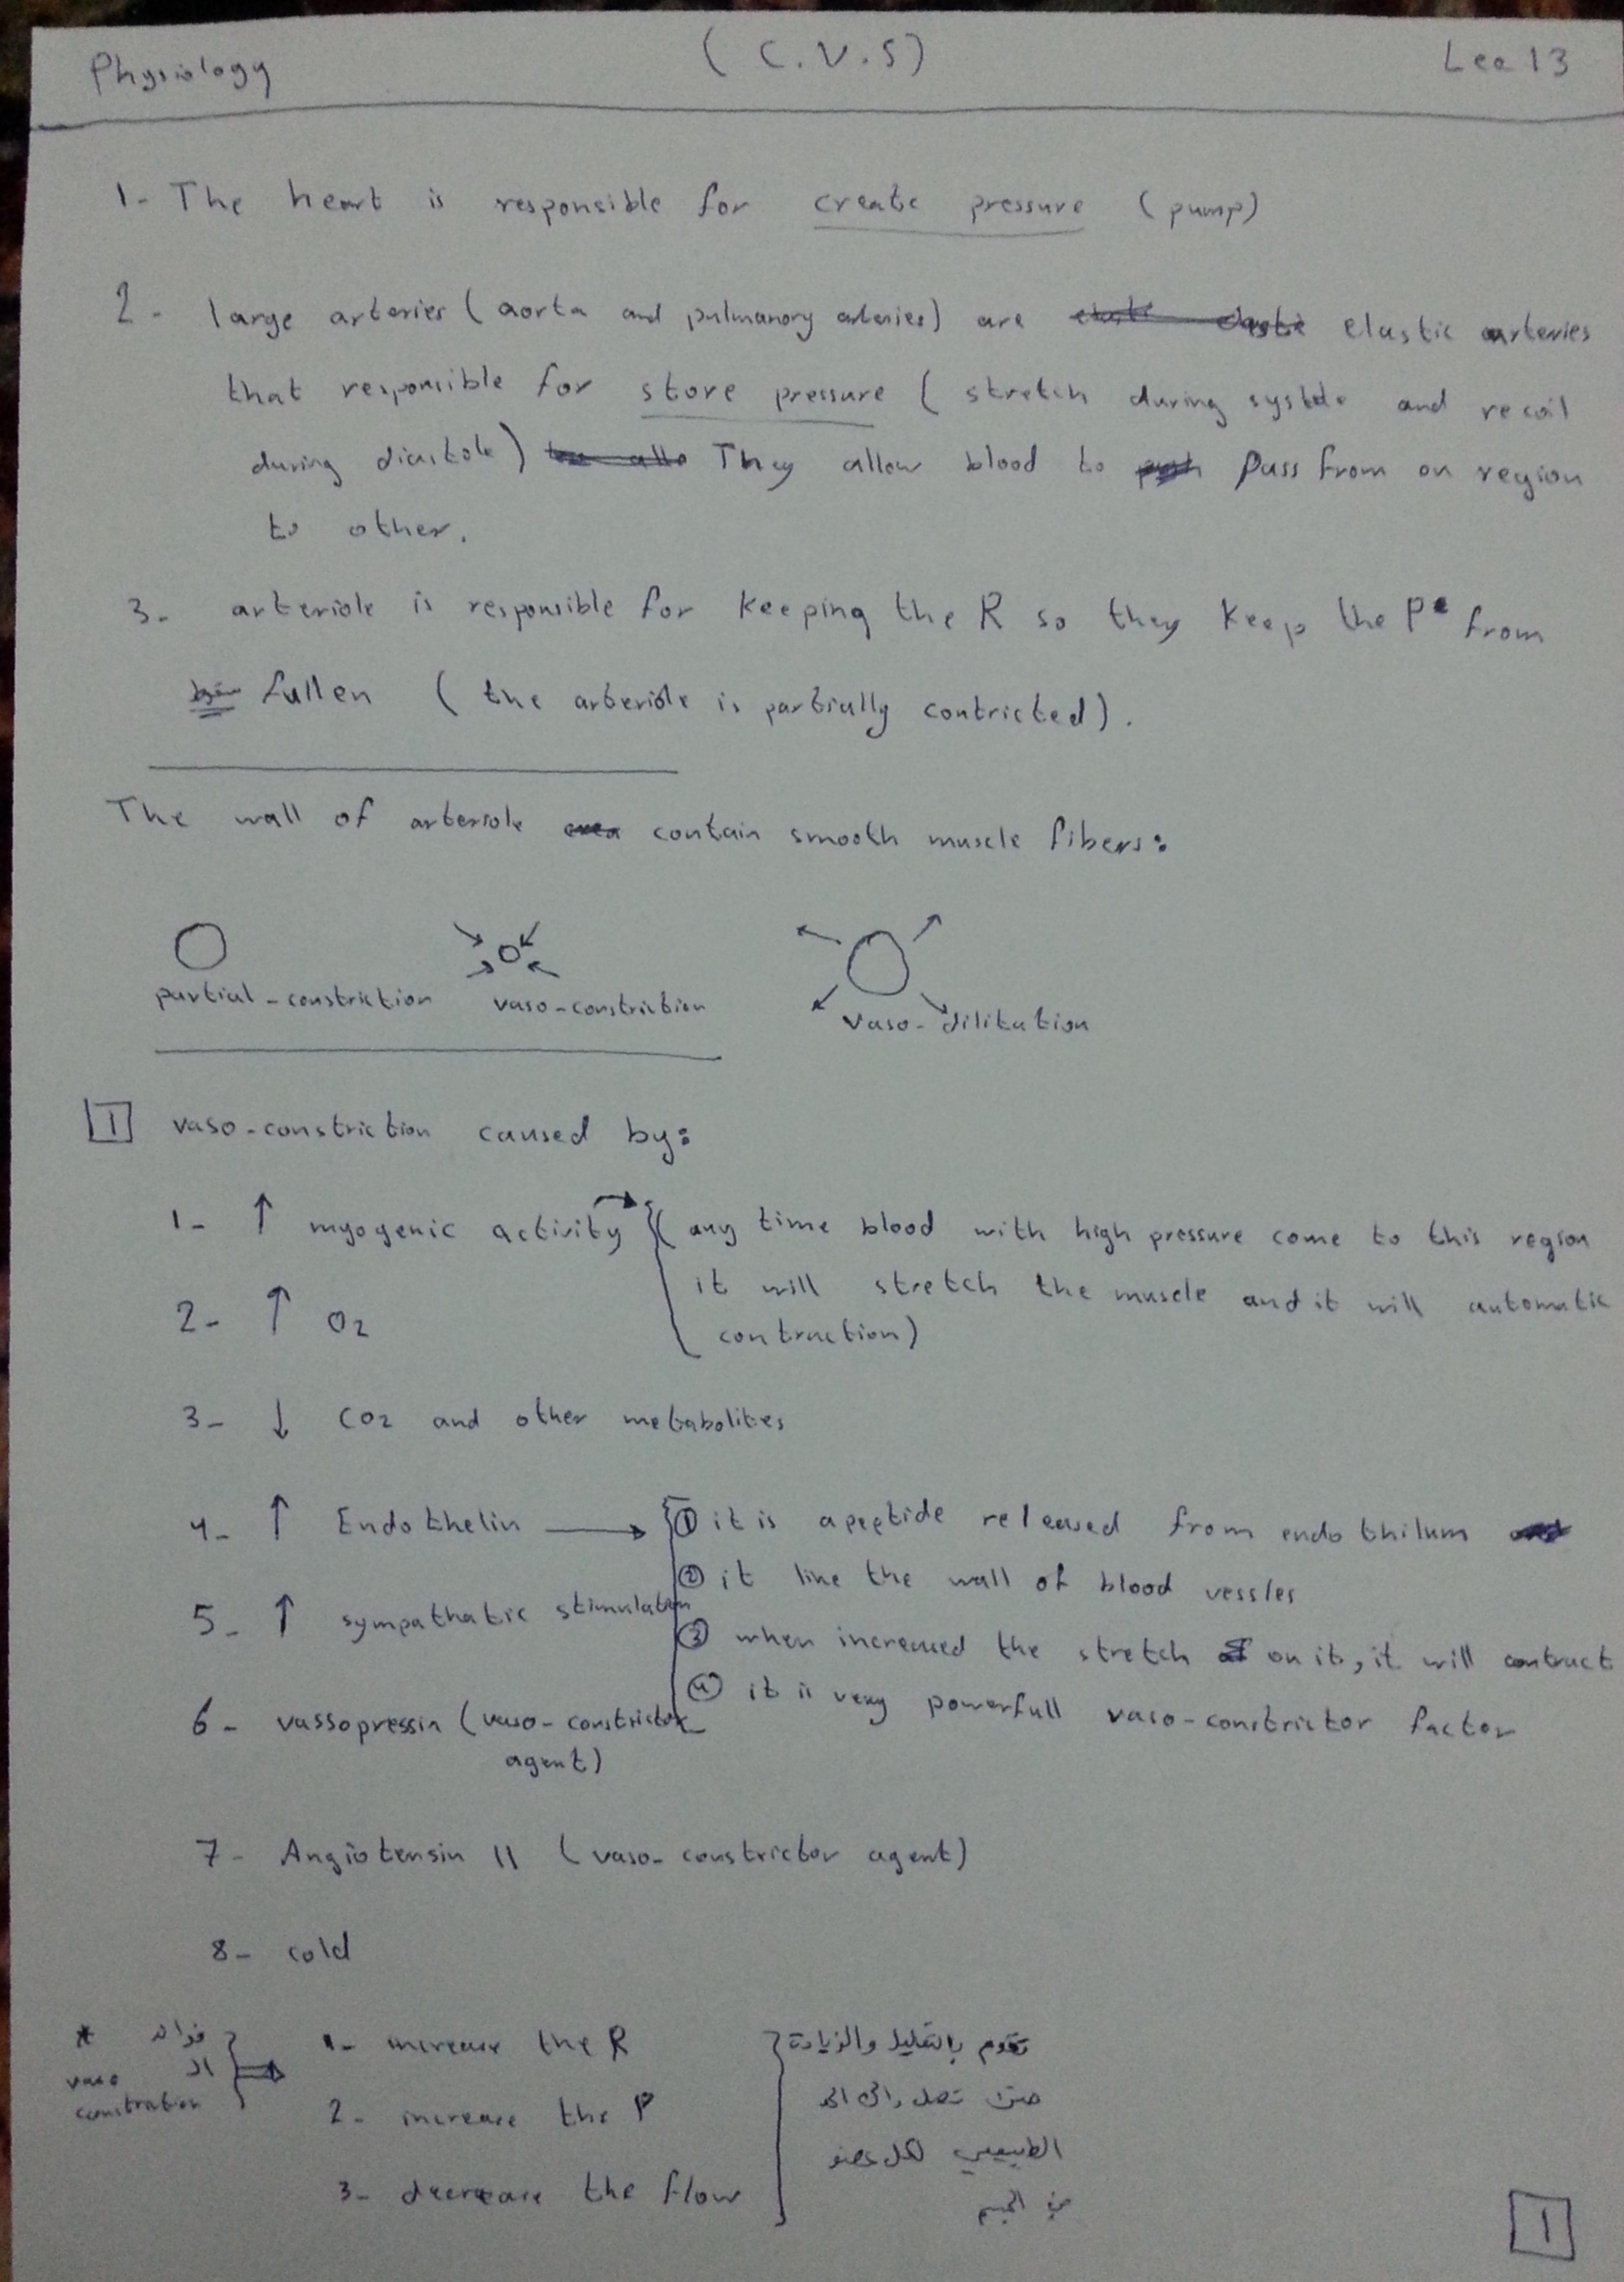 Physiology (C.V.S) Lec 13
1- The heart is responsible for create pressure (pump)
2- large arteries (aorta and pulmanory arteries) are elastic arteries
that responsible for store pressure (stretch during systole and recoil
during diastole) They allow blood to pass from on region
to other.
3- arteriole is responsible for keeping the R so they keep the P from
fallen (the arteriole is partially contricted).
The wall of arteriole contain smooth muscle fibers:
partial-constriction vaso-constriction vaso-dilitation
1 vaso-constriction caused by:
1- ↑ myogenic activity → (any time blood with high pressure come to this region
it will stretch the muscle and it will automatic
contraction)
2- ↑ O2
3- ↓ CO2 and other metabolites
4- ↑ Endothelin → ① it is a peptide released from endothilum
② it line the wall of blood vessles
③ when increased the stretch on it, it will contract
④ it is very powerfull vaso-constrictor factor
5- ↑ sympathatic stimulation
6- vassopressin (vaso-constrictor
agent)
7- Angiotensin II (vaso-constrictor agent)
8- cold
* فوائد
الـ
vaso
constriction
⇒ 1- increase the R
2- increase the P
3- decrease the flow
تقوم بالتقليل والزيادة
حتى تصل الى الحد
الطبيعي لكل عضو
من الجسم
1